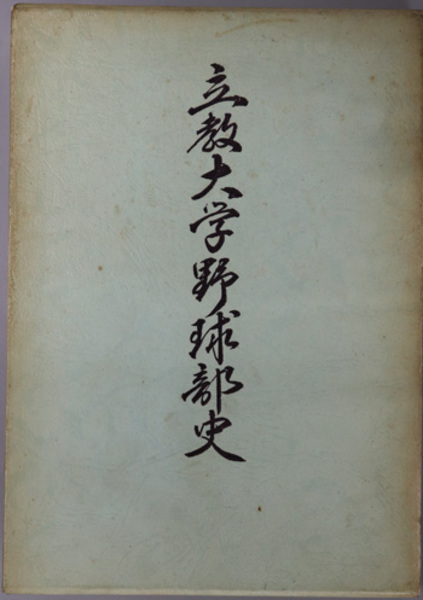 立教大学野球部史